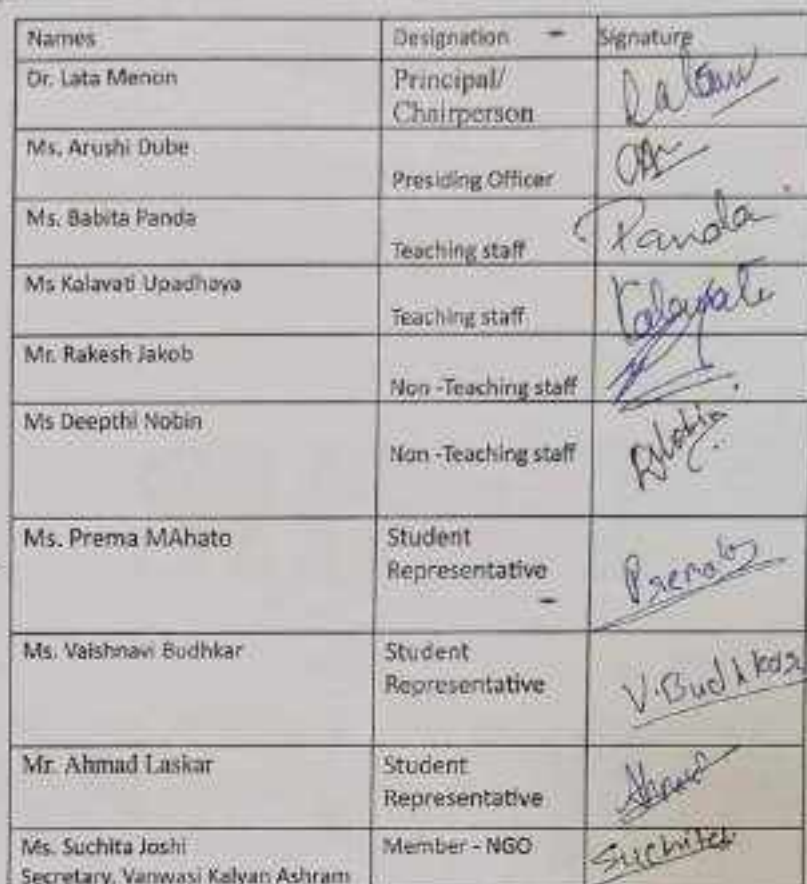 Names Designation Signature
Dr. Lata Menon Principal/
Chairperson
Ms. Arushi Dube
Presiding Officer
Ms. Babita Panda Panda
Teaching staff
Ms Kalavati Upadhaya
Teaching staff Kalavati
Mr. Rakesh Jakob
Non -Teaching staff
Ms Deepthi Nobin
Non -Teaching staff
Ms. Prema MAhato Student
Representative
Ms. Vaishnavi Budhkar Student
Representative V. Budhkar
Mr. Ahmad Laskar Student
Representative
Ms. Suchita Joshi Member - NGO
Secretary, Vanwasi Kalyan Ashram